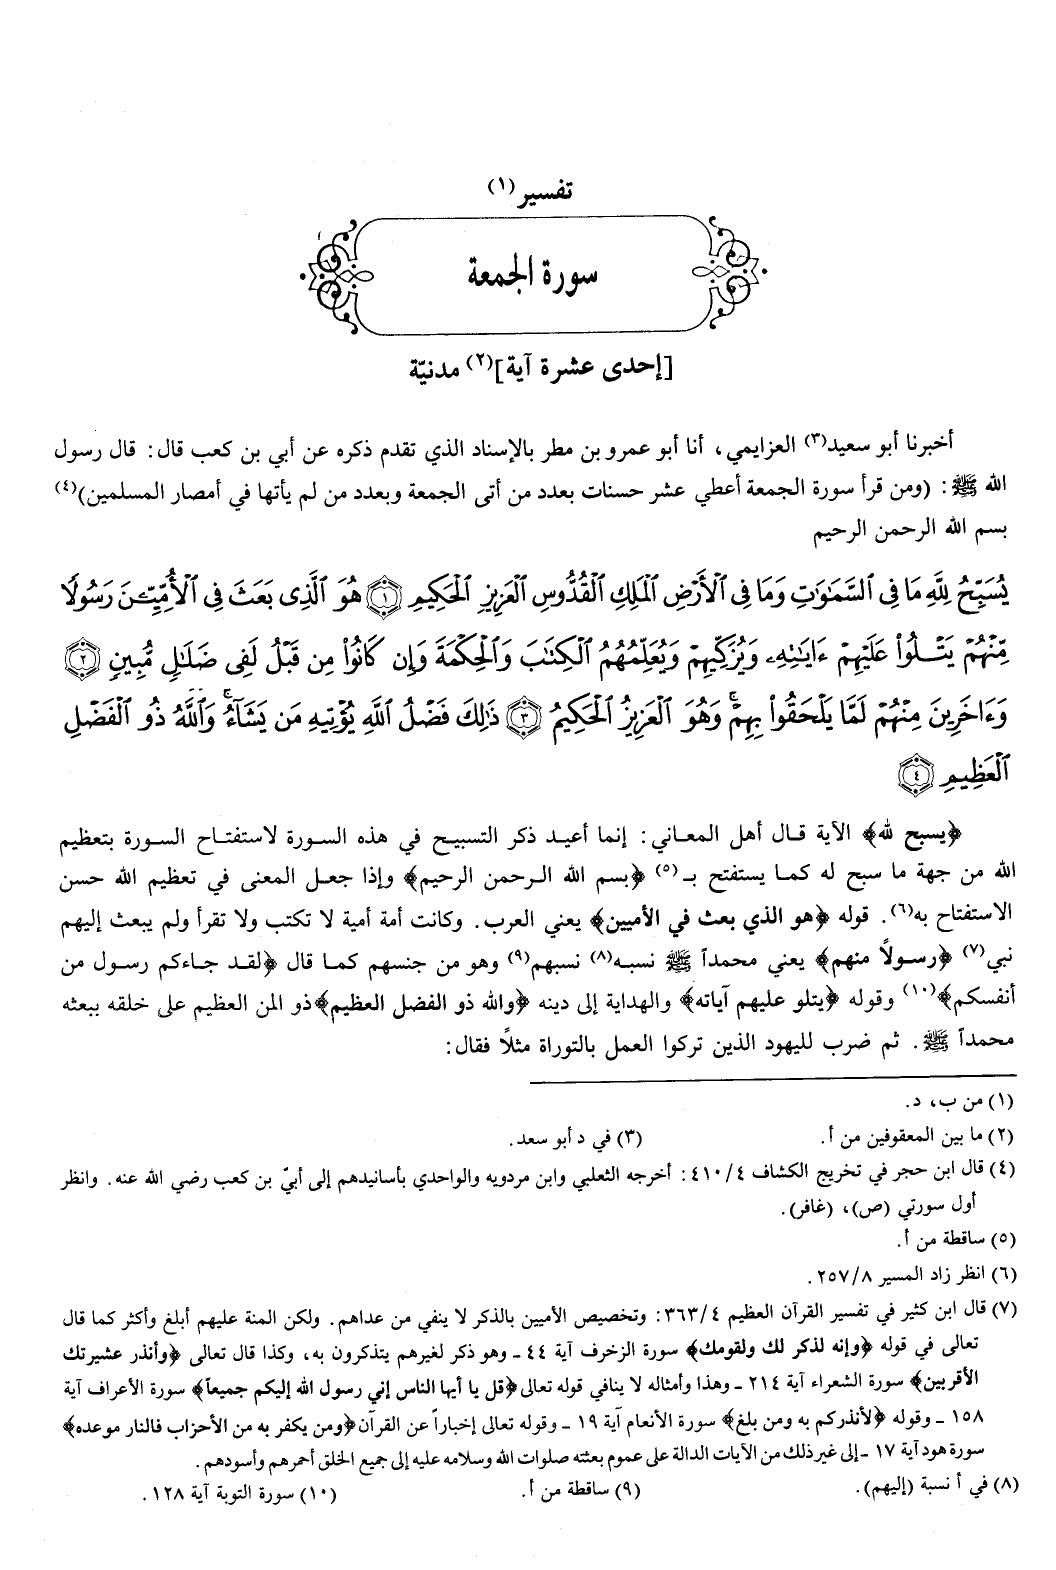 تفسير(١)
سورة الجمعة
[إحدى عشرة آية](٢) مدنيّة
أخبرنا أبو سعيد(٣) العزايمي، أنا أبو عمرو بن مطر بالإسناد الذي تقدم ذكره عن أبي بن كعب قال: قال رسول
الله ﷺ: (ومن قرأ سورة الجمعة أعطي عشر حسنات بعدد من أتى الجمعة وبعدد من لم يأتها في أمصار المسلمين)(٤)
بسم الله الرحمن الرحيم
يُسَبِّحُ لِلَّهِ مَا فِى ٱلسَّمَٰوَٰتِ وَمَا فِى ٱلْأَرْضِ ٱلْمَلِكِ ٱلْقُدُّوسِ ٱلْعَزِيزِ ٱلْحَكِيمِ ﴿١﴾ هُوَ ٱلَّذِى بَعَثَ فِى ٱلْأُمِّيِّـۧنَ رَسُولًا
مِّنْهُمْ يَتْلُوا۟ عَلَيْهِمْ ءَايَٰتِهِۦ وَيُزَكِّيهِمْ وَيُعَلِّمُهُمُ ٱلْكِتَٰبَ وَٱلْحِكْمَةَ وَإِن كَانُوا۟ مِن قَبْلُ لَفِى ضَلَٰلٍ مُّبِينٍ ﴿٢﴾
وَءَاخَرِينَ مِنْهُمْ لَمَّا يَلْحَقُوا۟ بِهِمْ ۚ وَهُوَ ٱلْعَزِيزُ ٱلْحَكِيمُ ﴿٣﴾ ذَٰلِكَ فَضْلُ ٱللَّهِ يُؤْتِيهِ مَن يَشَآءُ ۚ وَٱللَّهُ ذُو ٱلْفَضْلِ
ٱلْعَظِيمِ ﴿٤﴾
﴿يسبح لله﴾ الآية قال أهل المعاني: إنما أعيد ذكر التسبيح في هذه السورة لاستفتاح السورة بتعظيم
الله من جهة ما سبح له كما يستفتح بـ(٥) ﴿بسم الله الرحمن الرحيم﴾ وإذا جعل المعنى في تعظيم الله حسن
الاستفتاح به(٦). قوله ﴿هو الذي بعث في الأميين﴾ يعني العرب. وكانت أمة أمية لا تكتب ولا تقرأ ولم يبعث إليهم
نبي(٧) ﴿رسولاً منهم﴾ يعني محمداً ﷺ نسبه(٨) نسبهم(٩) وهو من جنسهم كما قال ﴿لقد جاءكم رسول من
أنفسكم﴾(١٠) وقوله ﴿يتلو عليهم آياته﴾ والهداية إلى دينه ﴿والله ذو الفضل العظيم﴾ ذو المن العظيم على خلقه ببعثه
محمداً ﷺ. ثم ضرب لليهود الذين تركوا العمل بالتوراة مثلاً فقال:
(١) من ب، د.
(٢) ما بين المعقوفين من أ. (٣) في د أبو سعد.
(٤) قال ابن حجر في تخريج الكشاف ٤/٤١٠: أخرجه الثعلبي وابن مردويه والواحدي بأسانيدهم إلى أبيّ بن كعب رضي الله عنه. وانظر
أول سورتي (ص)، (غافر).
(٥) ساقطة من أ.
(٦) انظر زاد المسير ٨/٢٥٧.
(٧) قال ابن كثير في تفسير القرآن العظيم ٤/٣٦٣: وتخصيص الأميين بالذكر لا ينفي من عداهم. ولكن المنة عليهم أبلغ وأكثر كما قال
تعالى في قوله ﴿وإنه لذكر لك ولقومك﴾ سورة الزخرف آية ٤٤ ـ وهو ذكر لغيرهم يتذكرون به، وكذا قال تعالى ﴿وأنذر عشيرتك
الأقربين﴾ سورة الشعراء آية ٢١٤ ـ وهذا وأمثاله لا ينافي قوله تعالى ﴿قل يا أيها الناس إني رسول الله إليكم جميعاً﴾ سورة الأعراف آية
١٥٨ ـ وقوله ﴿لأنذركم به ومن بلغ﴾ سورة الأنعام آية ١٩ ـ وقوله تعالى إخباراً عن القرآن ﴿ومن يكفر به من الأحزاب فالنار موعده﴾
سورة هود آية ١٧ ـ إلى غير ذلك من الآيات الدالة على عموم بعثته صلوات الله وسلامه عليه إلى جميع الخلق أحمرهم وأسودهم.
(٨) في أ نسبة (إليهم). (٩) ساقطة من أ. (١٠) سورة التوبة آية ١٢٨.